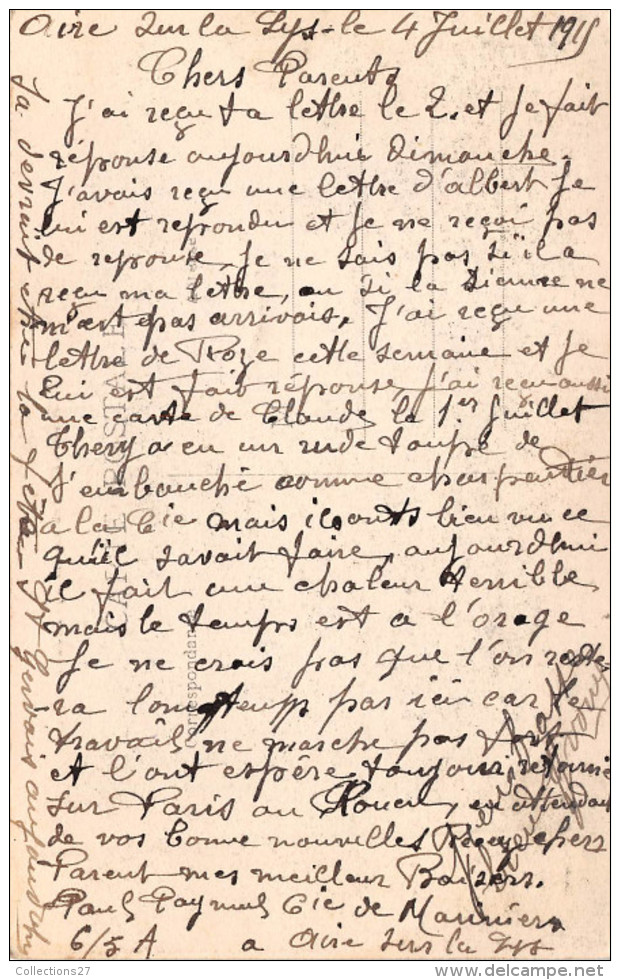 Aire sur la Lys - le 4 Juillet 1915
Chers Parents
J'ai reçu ta lettre le 2. et Je fait
réponse aujourdhui Dimanche.
J'avais reçu une lettre d'albert Je
lui est repondu et Je ne reçoi pas
de reponse Je ne sais pas s'il a
reçu ma lettre, ou si la sienne ne
m'est pas arrivais. J'ai reçu une
lettre de Roze cette semaine et Je
lui est fait réponse J'ai reçu aussi
une carte de Claude le 1er Juillet
Thery a eu un rude toupé de
s'embauché comme charpentier
a la Cie mais ils onts bien vu ce
qu'il savait faire, aujourdhui
il fait une chaleur terrible
mais le temps est a l'orage
Je ne crois pas que l'on reste-
ra longtemps pas ici car le
travail ne marche pas fort
et l'ont espère toujour retourné
sur Paris ou Rouen, en attendant
de vos bonne nouvelles Recevez chers
Parent mes meilleur Baisers.
Paul Cie de Mariniers
6/5 A a Aire sur la Lys
Sa devrait être la fête a St Gervais aujourdhui
CARTE POSTALE
Correspondance
Collections27
http://www.delcampe.net